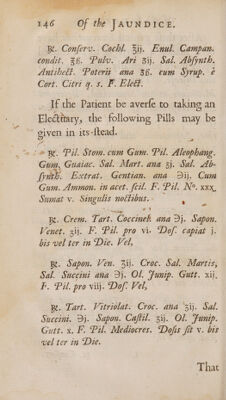 146 Of the JAUNDICE.
℞. Conserv. Cochl. ʒij. Enul. Campan.
condit. ℥ß. Pulv. Ari ʒij. Sal. Absynth.
Antihect. Poterii ana ʒß. cum Syrup. è
Cort. Citri q. s. F. Elect.
If the Patient be averse to taking an
Electuary, the following Pills may be
given in its stead.
℞. Pil. Stom. cum Gum. Pil. Aleophang.
Gum. Guaiac. Sal. Mart. ana ʒj. Sal. Ab-
synth. Extrat. Gentian. ana ℈ij. Cum
Gum. Ammon. in acet. scil. F. Pil. Nº. xxx.
Sumat v. Singulis noctibus.
℞. Crem. Tart. Coccineh ana ℈j. Sapon.
Venet. ʒij. F. Pil. pro vi. Dos. capiat j.
bis vel ter in Die. Vel,
℞. Sapon. Ven. ʒij. Croc. Sal. Martis,
Sal. Succini ana ℈j. Ol. Junip. Gutt. xij.
F. Pil. pro viij. Dos. Vel,
℞. Tart. Vitriolat. Croc. ana ʒij. Sal.
Succini. ℈j. Sapon. Castil. ʒij. Ol. Junip.
Gutt. x. F. Pil. Mediocres. Dosis sit v. bis
vel ter in Die.
That